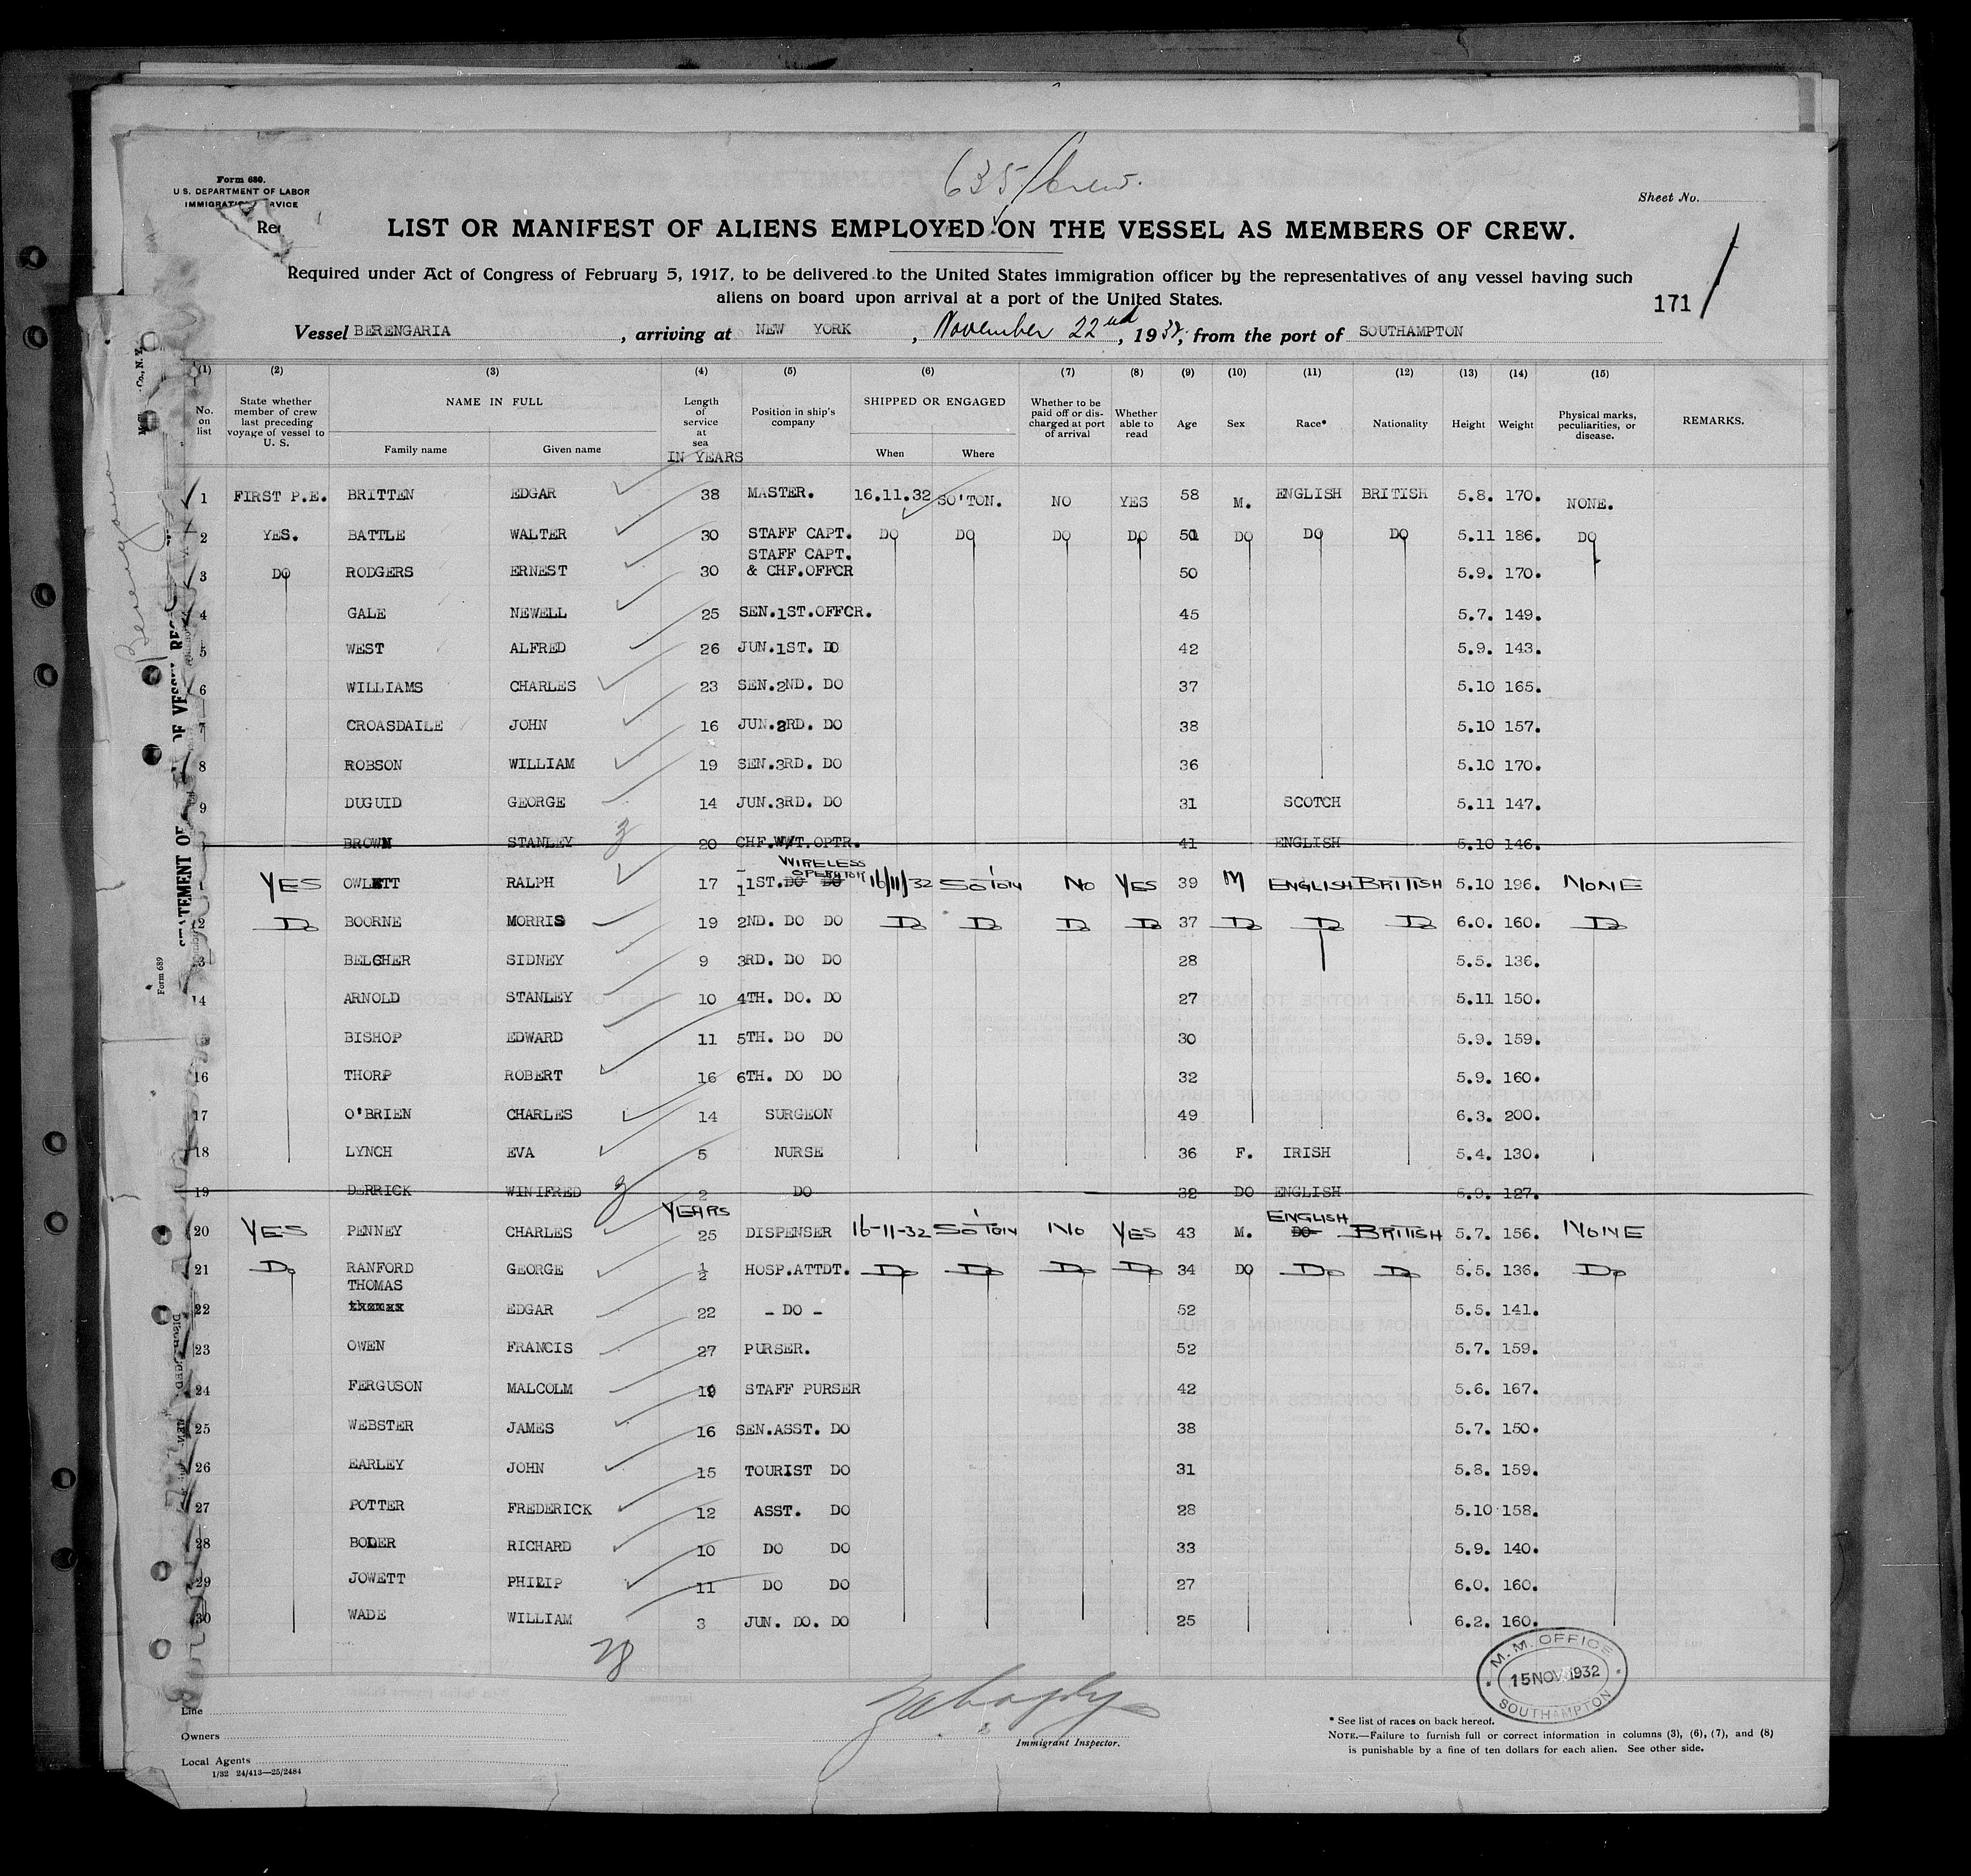 635/Crew.
Form 680.
U.S. DEPARTMENT OF LABOR
Sheet No.
LIST OR MANIFEST OF ALIENS EMPLOYED ON THE VESSEL AS MEMBERS OF CREW.
Required under Act of Congress of February 5, 1917, to be delivered to the United States immigration officer by the representatives of any vessel having such
aliens on board upon arrival at a port of the United States.
171
Vessel BERENGARIA, arriving at NEW YORK, November 22nd, 1932, from the port of SOUTHAMPTON
(1) (2) (3) (4) (5) (6) (7) (8) (9) (10) (11) (12) (13) (14) (15)
No. on list State whether member of crew last preceding voyage of vessel to U. S. NAME IN FULL Family name Given name Length of service at sea IN YEARS Position in ship's company SHIPPED OR ENGAGED When Where Whether to be paid off or discharged at port of arrival Whether able to read Age Sex Race* Nationality Height Weight Physical marks, peculiarities, or disease. REMARKS.
1 FIRST P.E. BRITTEN EDGAR 38 MASTER. 16.11.32 SO'TON. NO YES 58 M. ENGLISH BRITISH 5.8. 170. NONE.
2 YES. BATTLE WALTER 30 STAFF CAPT. DO DO DO DO 50 DO DO DO 5.11 186. DO
STAFF CAPT.
3 DO RODGERS ERNEST 30 & CHF.OFFCR 50 5.9. 170.
4 GALE NEWELL 25 SEN.1ST.OFFCR. 45 5.7. 149.
5 WEST ALFRED 26 JUN.1ST. DO 42 5.9. 143.
6 WILLIAMS CHARLES 23 SEN.2ND. DO 37 5.10 165.
7 CROASDAILE JOHN 16 JUN.2RD. DO 38 5.10 157.
8 ROBSON WILLIAM 19 SEN.3RD. DO 36 5.10 170.
9 DUGUID GEORGE 14 JUN.3RD. DO 31 SCOTCH 5.11 147.
BROWN STANLEY 20 CHF.W/T.OPTR. 41 ENGLISH 5.10 146.
WIRELESS
OPERATOR
1 YES OWLETT RALPH 17 1ST. DO DO 16/11/32 SO'TON NO YES 39 M ENGLISH BRITISH 5.10 196. NONE
2 Do BOORNE MORRIS 19 2ND. DO DO Do Do Do Do 37 Do Do Do 6.0. 160. Do
3 BELCHER SIDNEY 9 3RD. DO DO 28 5.5. 136.
14 ARNOLD STANLEY 10 4TH. DO. DO 27 5.11 150.
BISHOP EDWARD 11 5TH. DO DO 30 5.9. 159.
16 THORP ROBERT 16 6TH. DO DO 32 5.9. 160.
17 O'BRIEN CHARLES 14 SURGEON 49 6.3. 200.
18 LYNCH EVA 5 NURSE 36 F. IRISH 5.4. 130.
19 DERRICK WINIFRED 2 DO 32 DO ENGLISH 5.9. 127.
YEARS ENGLISH
20 YES PENNEY CHARLES 25 DISPENSER 16-11-32 SO'TON NO YES 43 M. DO BRITISH 5.7. 156. NONE
21 Do RANFORD GEORGE ½ HOSP.ATTDT. Do Do Do Do 34 DO Do Do 5.5. 136. Do
THOMAS
22 EDGAR 22 - DO - 52 5.5. 141.
23 OWEN FRANCIS 27 PURSER. 52 5.7. 159.
24 FERGUSON MALCOLM 19 STAFF PURSER 42 5.6. 167.
25 WEBSTER JAMES 16 SEN.ASST. DO 38 5.7. 150.
26 EARLEY JOHN 15 TOURIST DO 31 5.8. 159.
27 POTTER FREDERICK 12 ASST. DO 28 5.10 158.
28 BODER RICHARD 10 DO DO 33 5.9. 140.
29 JOWETT PHILIP 11 DO DO 27 6.0. 160.
30 WADE WILLIAM 3 JUN. DO. DO 25 6.2. 160.
28
M. M. OFFICE
15 NOV 1932
SOUTHAMPTON
Line
Owners
Local Agents
1/32 24/413—25/2484
Immigrant Inspector.
* See list of races on back hereof.
NOTE.—Failure to furnish full or correct information in columns (3), (6), (7), and (8)
is punishable by a fine of ten dollars for each alien. See other side.
Berengaria
STATEMENT OF
OF VESSEL
Form 689